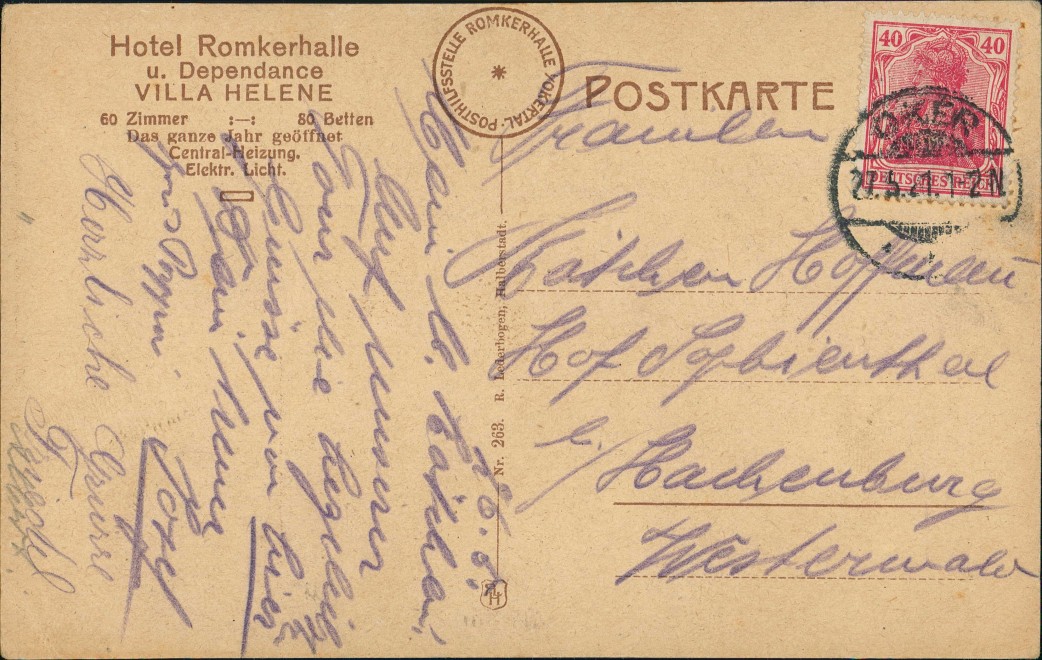 Hotel Romkerhalle
u. Dependance
VILLA HELENE
60 Zimmer :—: 80 Betten
Das ganze Jahr geöffnet
Central-Heizung.
Elektr. Licht.
POSTHILFSSTELLE ROMKERHALLE (OKERTAL)
POSTKARTE
40 40
DEUTSCHES REICH
OKER
27.5.21. 1-2 N
Fräulein
Käthchen Hoffmann
Hof Sophienthal
b/ Hachenburg
Westerwald
26.5.
Mein lb. Käthchen!
Auf unserer
Tour
Grüsse von hier
Dein
Josef
Herrliche
Grüsse
Nr. 263. R. Lederbogen, Halberstadt.